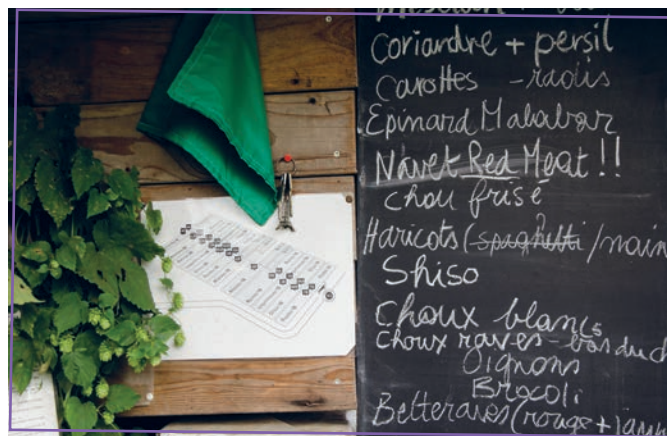 Coriandre + persil
Carottes - radis
Epinard Malabar
Navet Red Meat !!
chou frisé
Haricots (spaghetti / nain
Shiso
Choux blancs
Choux raves - bas du
Oignons
Brocoli
Betteraves (rouge +